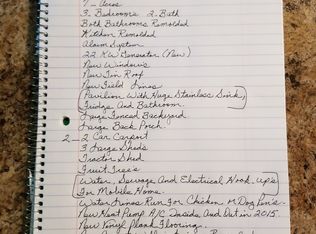 7- Acres
3- Bedrooms 2- Bath
Both Bathrooms Remolded
Kitchen Remolded
Alarm System
22 KW Generator (New)
New Windows
New Tin Roof
New Field Lines
Pavilion With Huge Stainless Sink,
Fridge And Bathroom
Large Fenced Backyard
Large Back Porch.
2- 2 Car Carport
3 Large Sheds
Tractor Shed
Fruit Trees
Water, Sewage And Electrical Hook Up's
For Mobile Home.
Water Lines Run For Chicken or Dog Pens.
New Heat Pump A/C Inside And Out in 2015.
New Vinyl Plank Flooring.